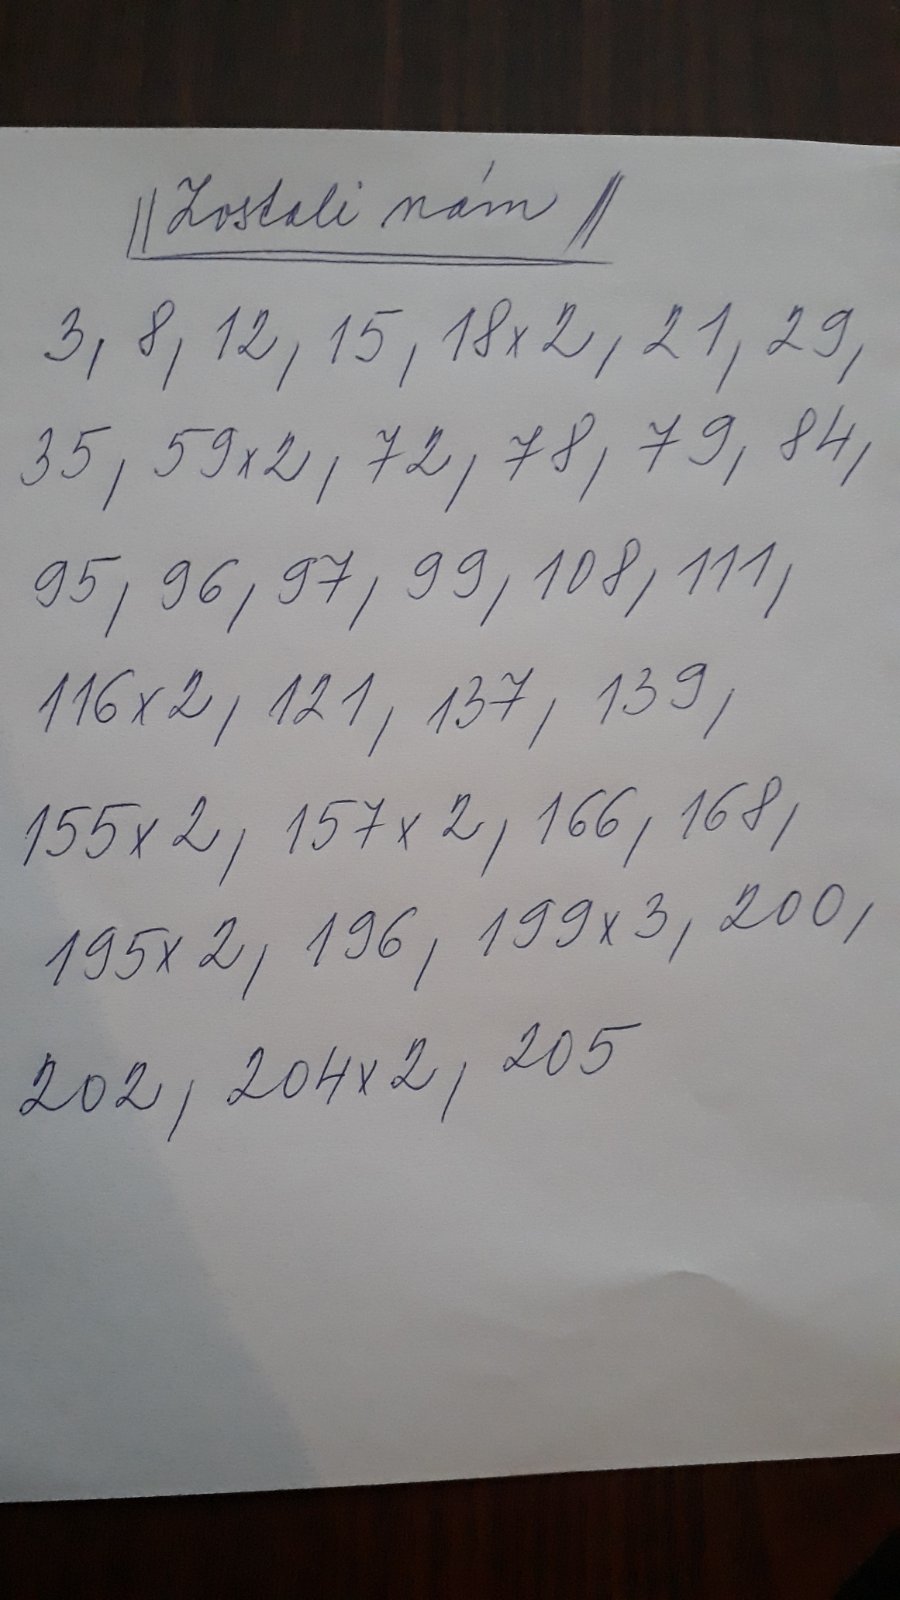 Zostali nám
3, 8, 12, 15, 18x2, 21, 29,
35, 59x2, 72, 78, 79, 84,
95, 96, 97, 99, 108, 111,
116x2, 121, 137, 139,
155x2, 157x2, 166, 168,
195x2, 196, 199x3, 200,
202, 204x2, 205